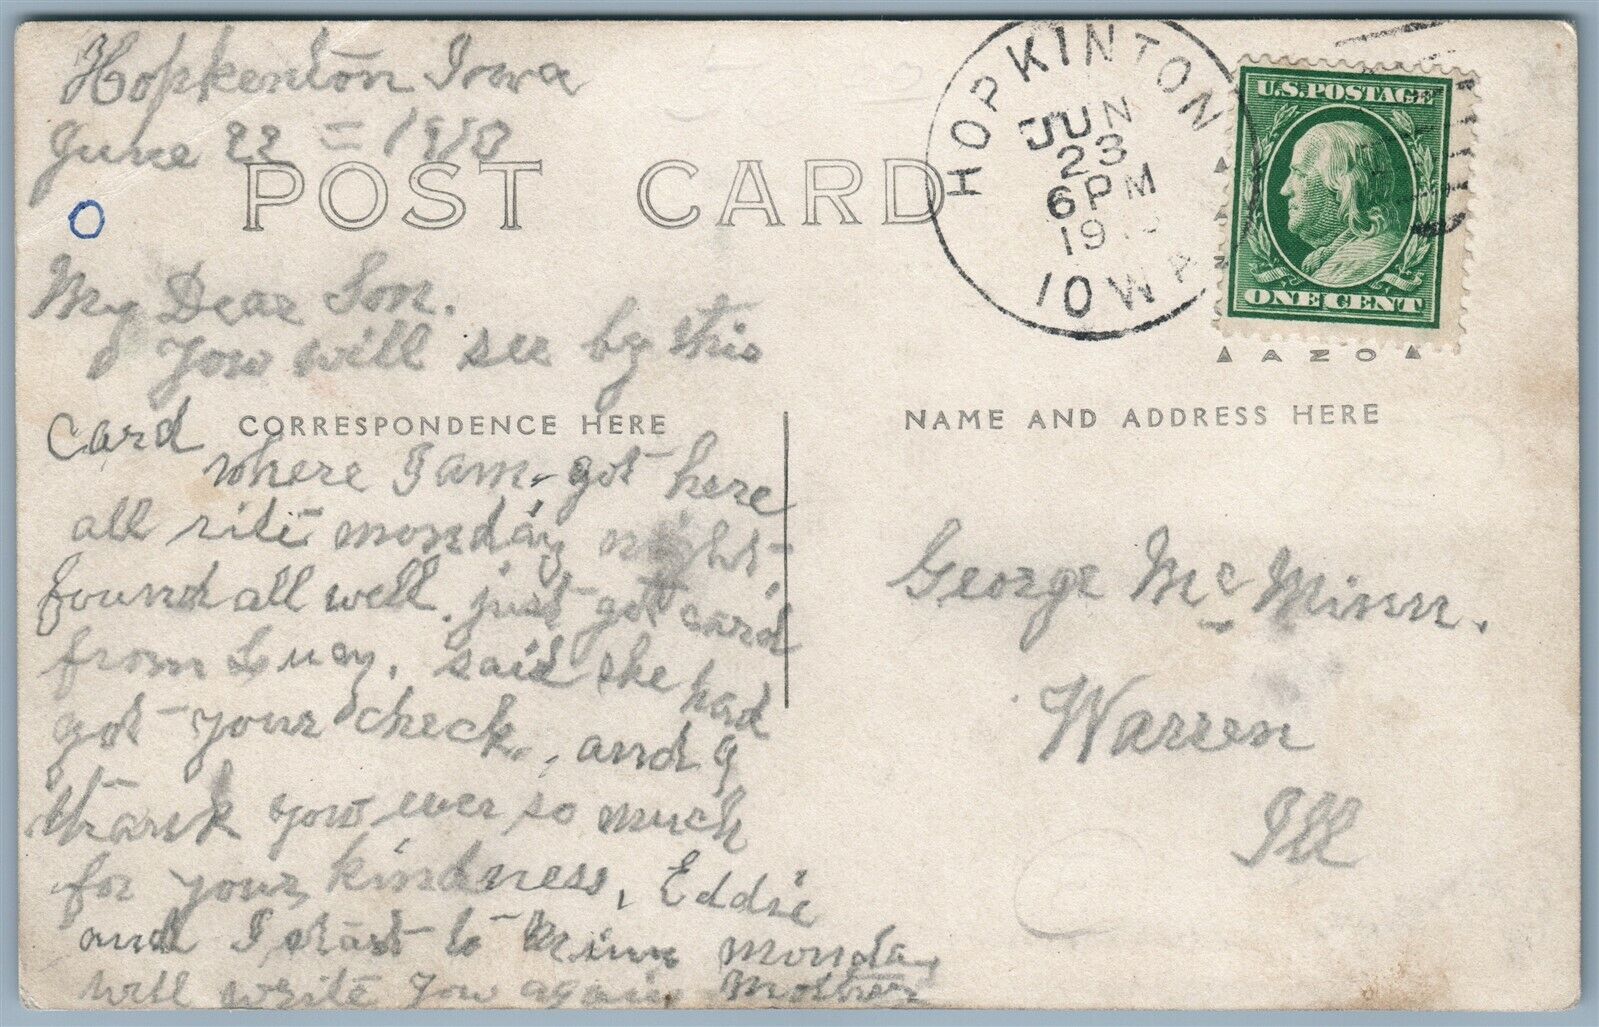 Hopkenton Iowa
June 22 = 1910
POST CARD
HOPKINTON
JUN
23
6 PM
19
IOWA
U.S. POSTAGE
ONE CENT
AZO
My Dear Son.
You will see by this
card
CORRESPONDENCE HERE
where I am - got here
all rite monday night,
found all well. just got card
from Lucy. said she had
got your check, and I
thank you ever so much
for your kindness, Eddie
and I start to monday
will write you again Mother
NAME AND ADDRESS HERE
George Mc Minn.
Warren
Ill